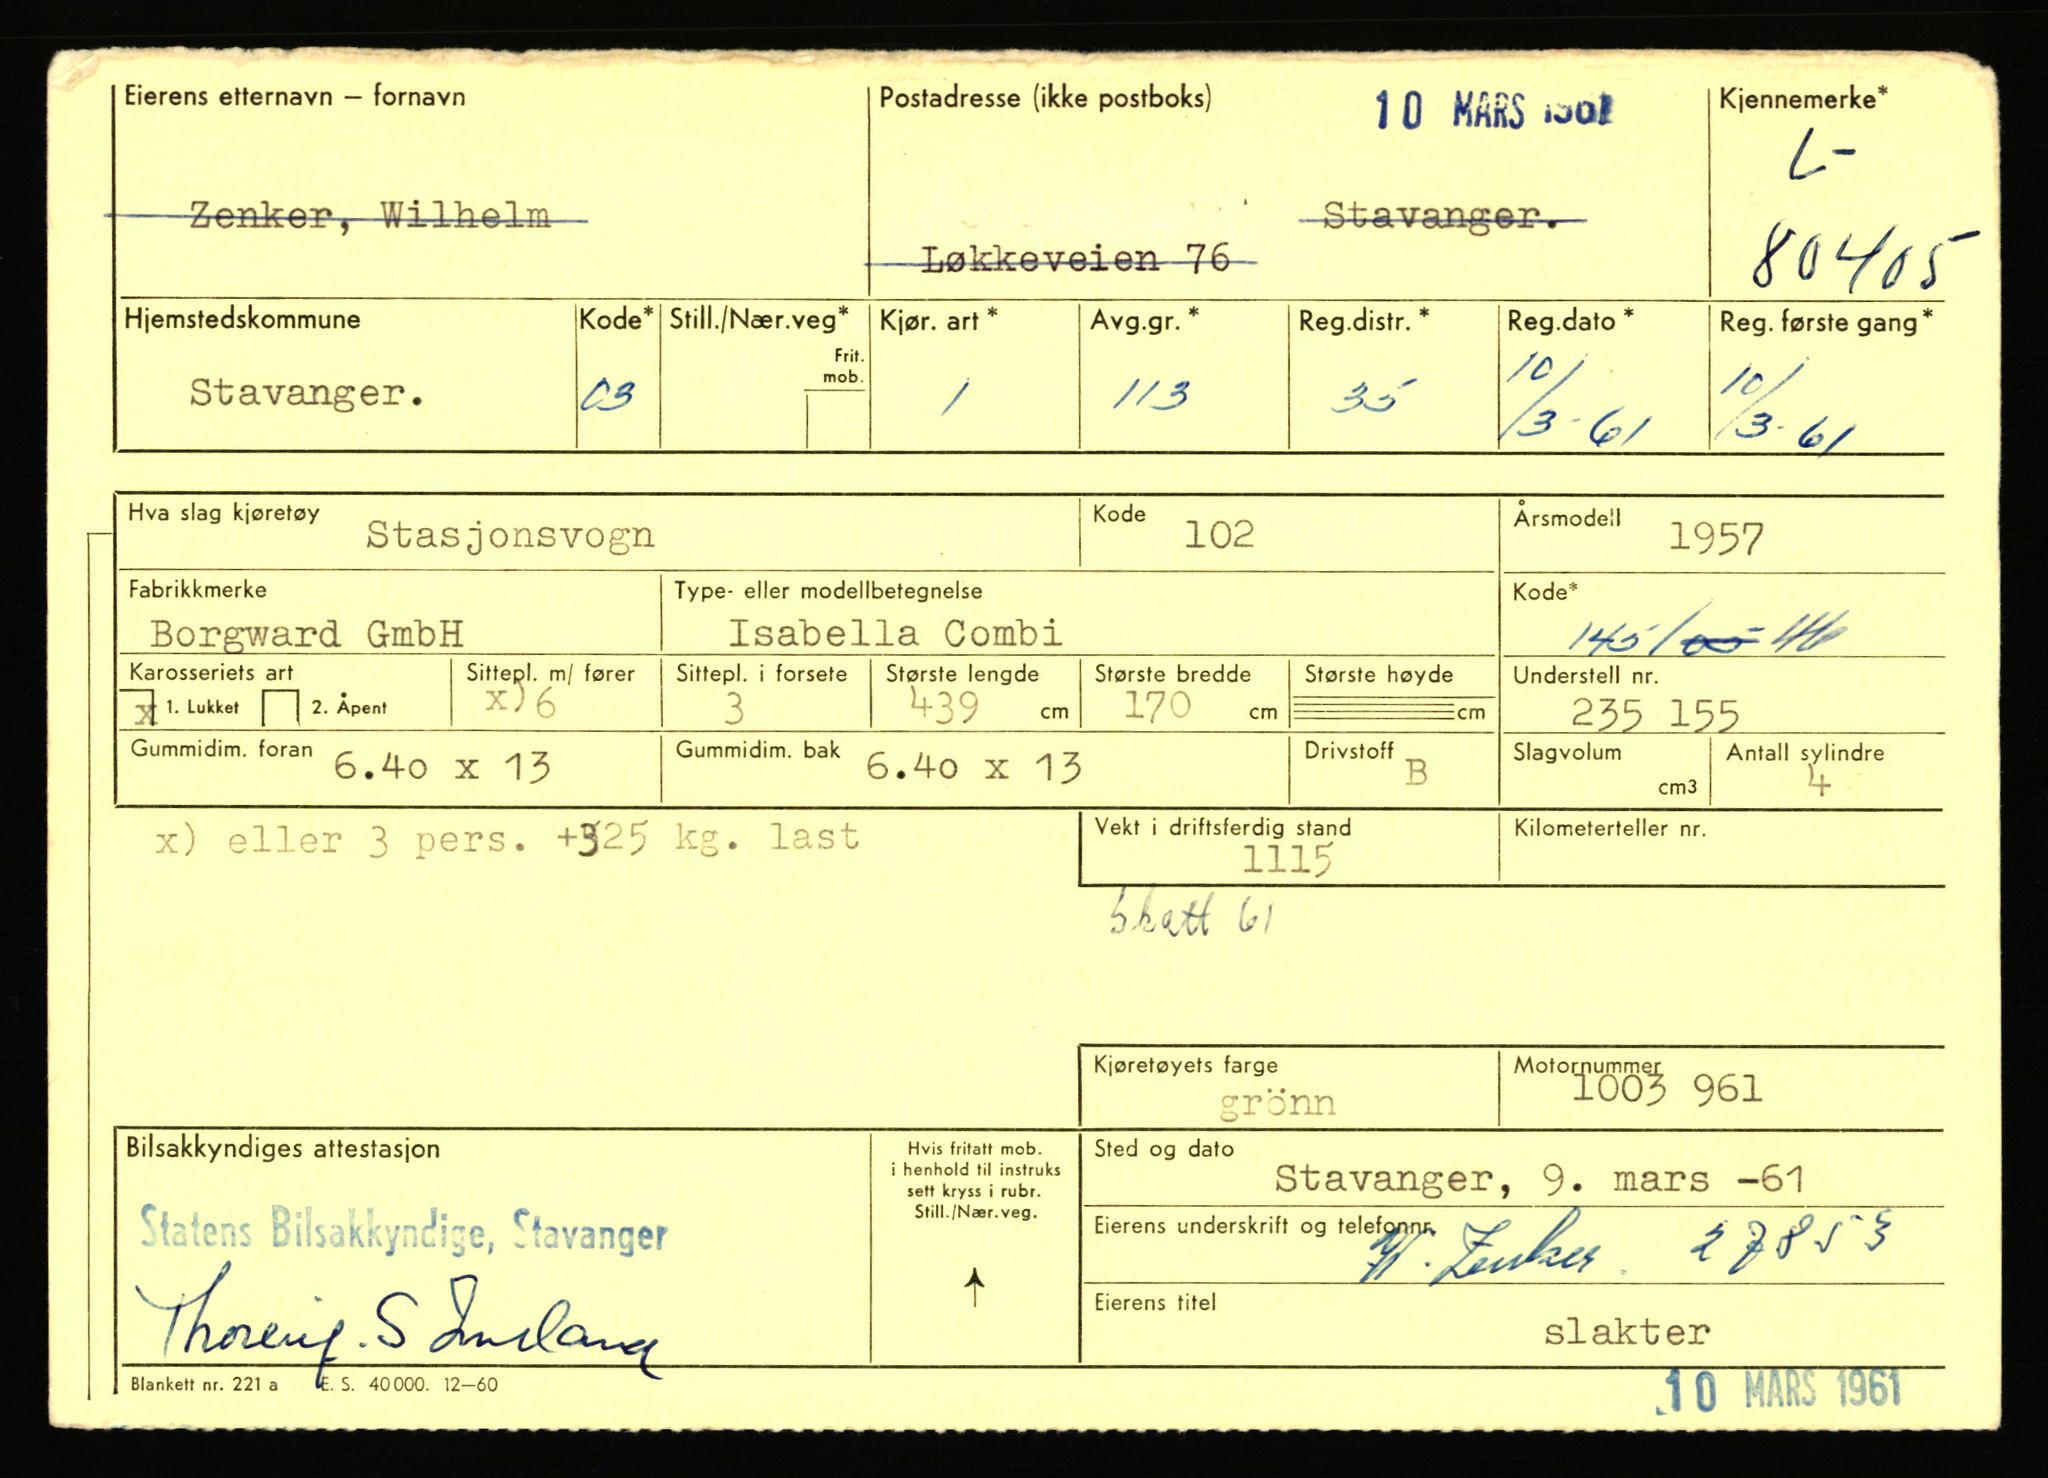 Eierens etternavn – fornavn
Postadresse (ikke postboks)
10 MARS 1961
Kjennemerke*
L-
80405
Zenker, Wilhelm
Stavanger.
Løkkeveien 76
Hjemstedskommune
Kode*
Still./Nær.veg*
Frit. mob.
Kjør. art*
Avg.gr.*
Reg.distr.*
Reg.dato*
Reg. første gang*
Stavanger.
03
1
113
35
10/3-61
10/3-61
Hva slag kjøretøy
Stasjonsvogn
Kode
102
Årsmodell
1957
Fabrikkmerke
Borgward GmbH
Type- eller modellbetegnelse
Isabella Combi
Kode*
145/
Karosseriets art
x 1. Lukket 2. Åpent
Sittepl. m/ fører
x) 6
Sittepl. i forsete
3
Største lengde
439 cm
Største bredde
170 cm
Største høyde
cm
Understell nr.
235 155
Gummidim. foran
6.40 x 13
Gummidim. bak
6.40 x 13
Drivstoff
B
Slagvolum
cm3
Antall sylindre
4
x) eller 3 pers. +325 kg. last
Vekt i driftsferdig stand
1115
Kilometerteller nr.
Skatt 61
Kjøretøyets farge
grönn
Motornummer
1003 961
Bilsakkyndiges attestasjon
Statens Bilsakkyndige, Stavanger
Hvis fritatt mob.
i henhold til instruks
sett kryss i rubr.
Still./Nær.veg.
Sted og dato
Stavanger, 9. mars -61
Eierens underskrift og telefonnr.
W. Zenker. 27853
Eierens titel
slakter
Blankett nr. 221 a E. S. 40 000. 12–60
10 MARS 1961